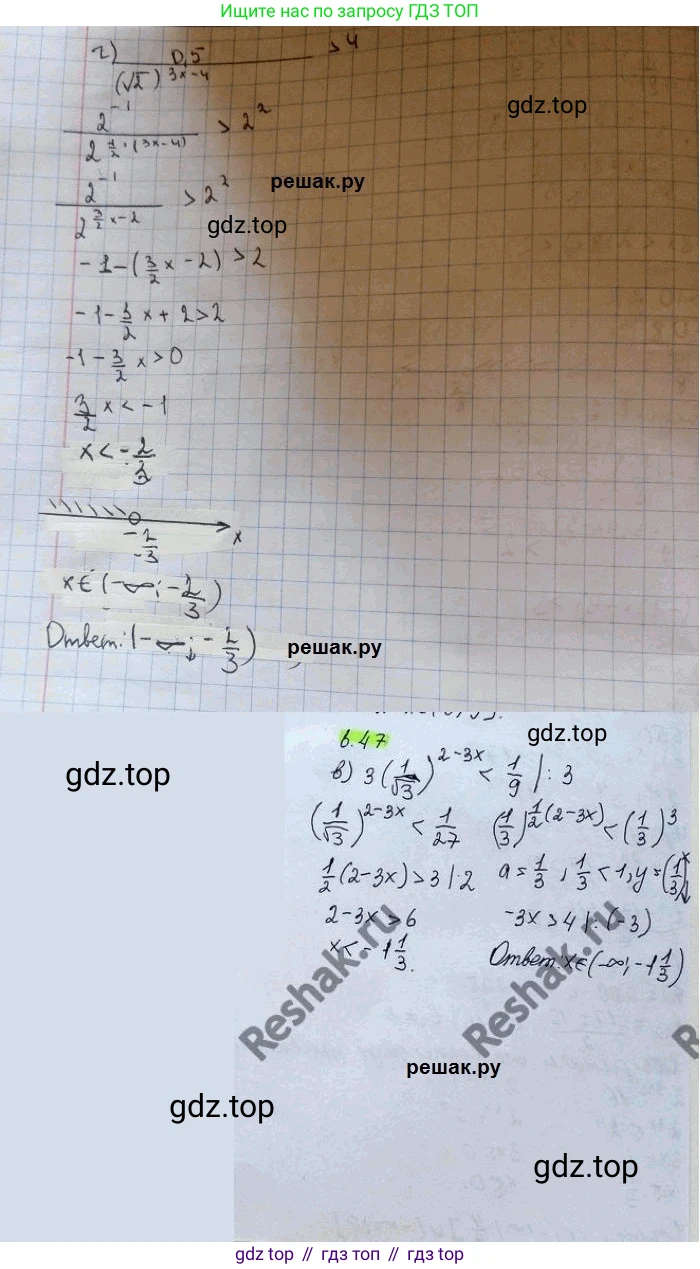 Ищите нас по запросу ГДЗ ТОП
г) 0,5 / (√2)^(3x-4) > 4
gdz.top
2^(-1) / 2^(1/2·(3x-4)) > 2^2
решак.ру
2^(-1) / 2^(3/2x-2) > 2^2
gdz.top
-1-(3/2x-2) > 2
-1-3/2x+2>2
-1-3/2x>0
3/2x<-1
x<-2/3
-2/3 x
x∈(-∞;-2/3)
Ответ: (-∞;-2/3)
решак.ру
6.47
gdz.top
gdz.top
в) 3(1/√3)^(2-3x) < 1/9 |:3
(1/√3)^(2-3x) < 1/27 (1/3)^(1/2(2-3x)) < (1/3)^3
1/2(2-3x)>3 |·2 a=1/3, 1/3<1, y=(1/3)^x↓
2-3x>6 -3x>4 |:(-3)
x<-1 1/3. Ответ: x∈(-∞;-1 1/3)
Reshak.ru
Reshak.ru
решак.ру
gdz.top
gdz.top
gdz top // гдз топ // гдз top